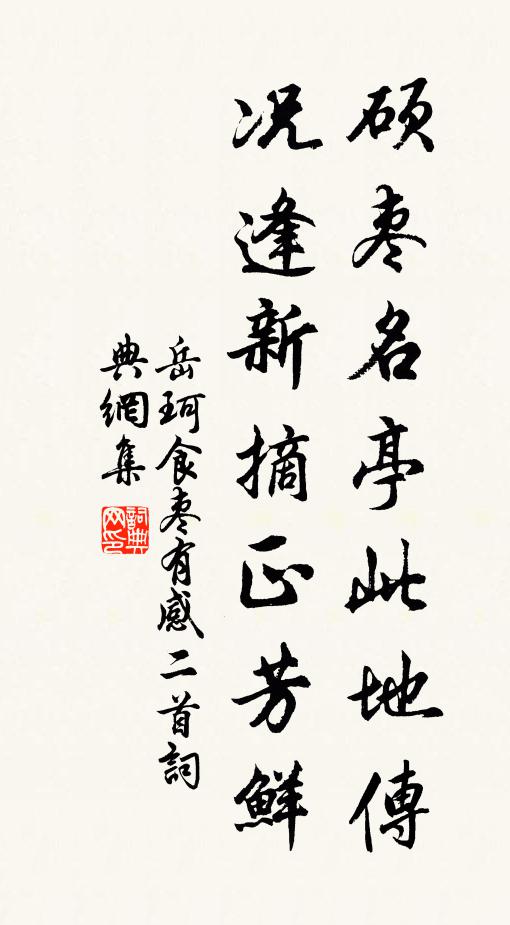 硕枣名亭此地傳
况逢新摘正芳鮮
岳珂食枣有感二首詞
典網集
詞典网印